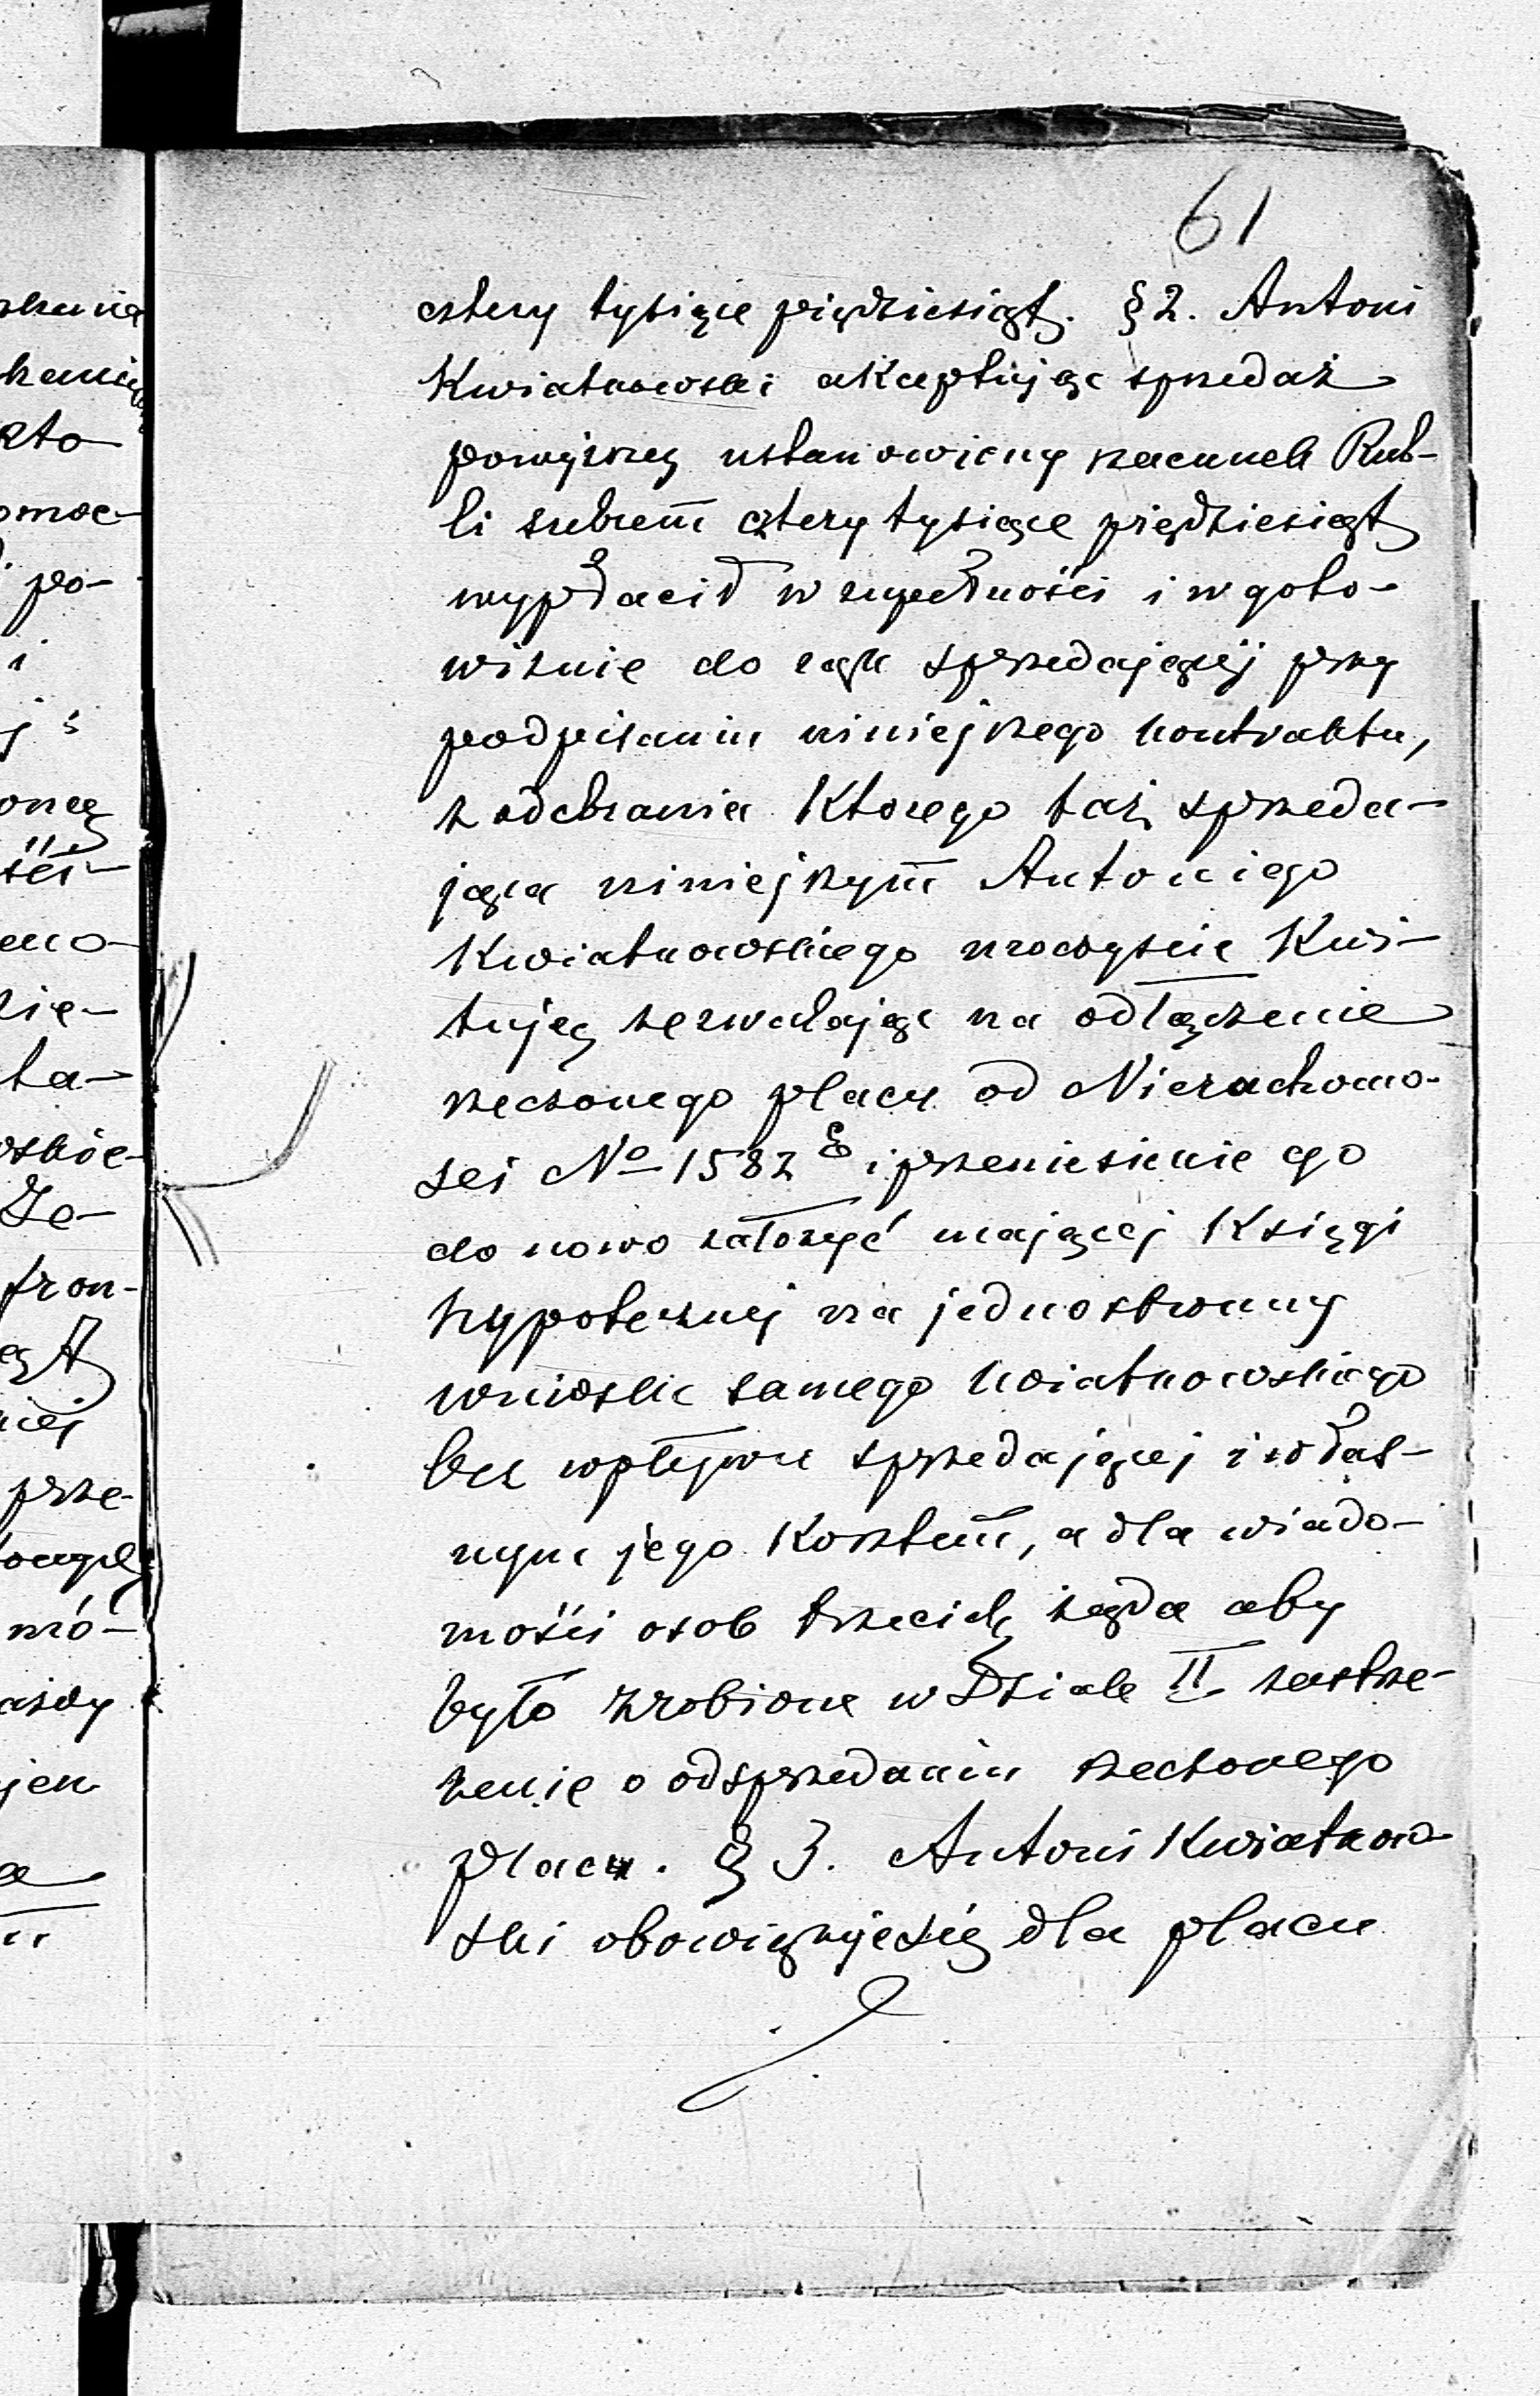 61
cztery tysiące pięćdziesiąt. § 2. Antoni
Kwiatkowski akceptując sprzedaż
powyższą ustanowiony szacunek Rub-
li srebrem cztery tysiące pięćdziesiąt
wypłacił w zupełności i w goto-
wiznie do rąk sprzedającej przy
podpisaniu niniejszego kontraktu,
z odebrania którego taż sprzeda-
jąca niniejszym Antoniego
Kwiatkowskiego uroczyście Kwi-
tuję zezwalając na odłączenie
rzeczonego placu od Nieruchomo-
sci No 1582 E i przeniesienie go
do nowo założyć mającej Księgi
hypotecznej na jednostronny
wniosek samego Kwiatkowskiego
bez wpływu sprzedającej i włas-
nym jego Kosztem, a dla wiado-
mości osob trzecich żąda aby
było zrobione w Dziale II zastrze-
żenie o odsprzedaniu rzeczonego
placu. § 3. Antoni Kwiatkow-
ski obowiązuje się dla placu